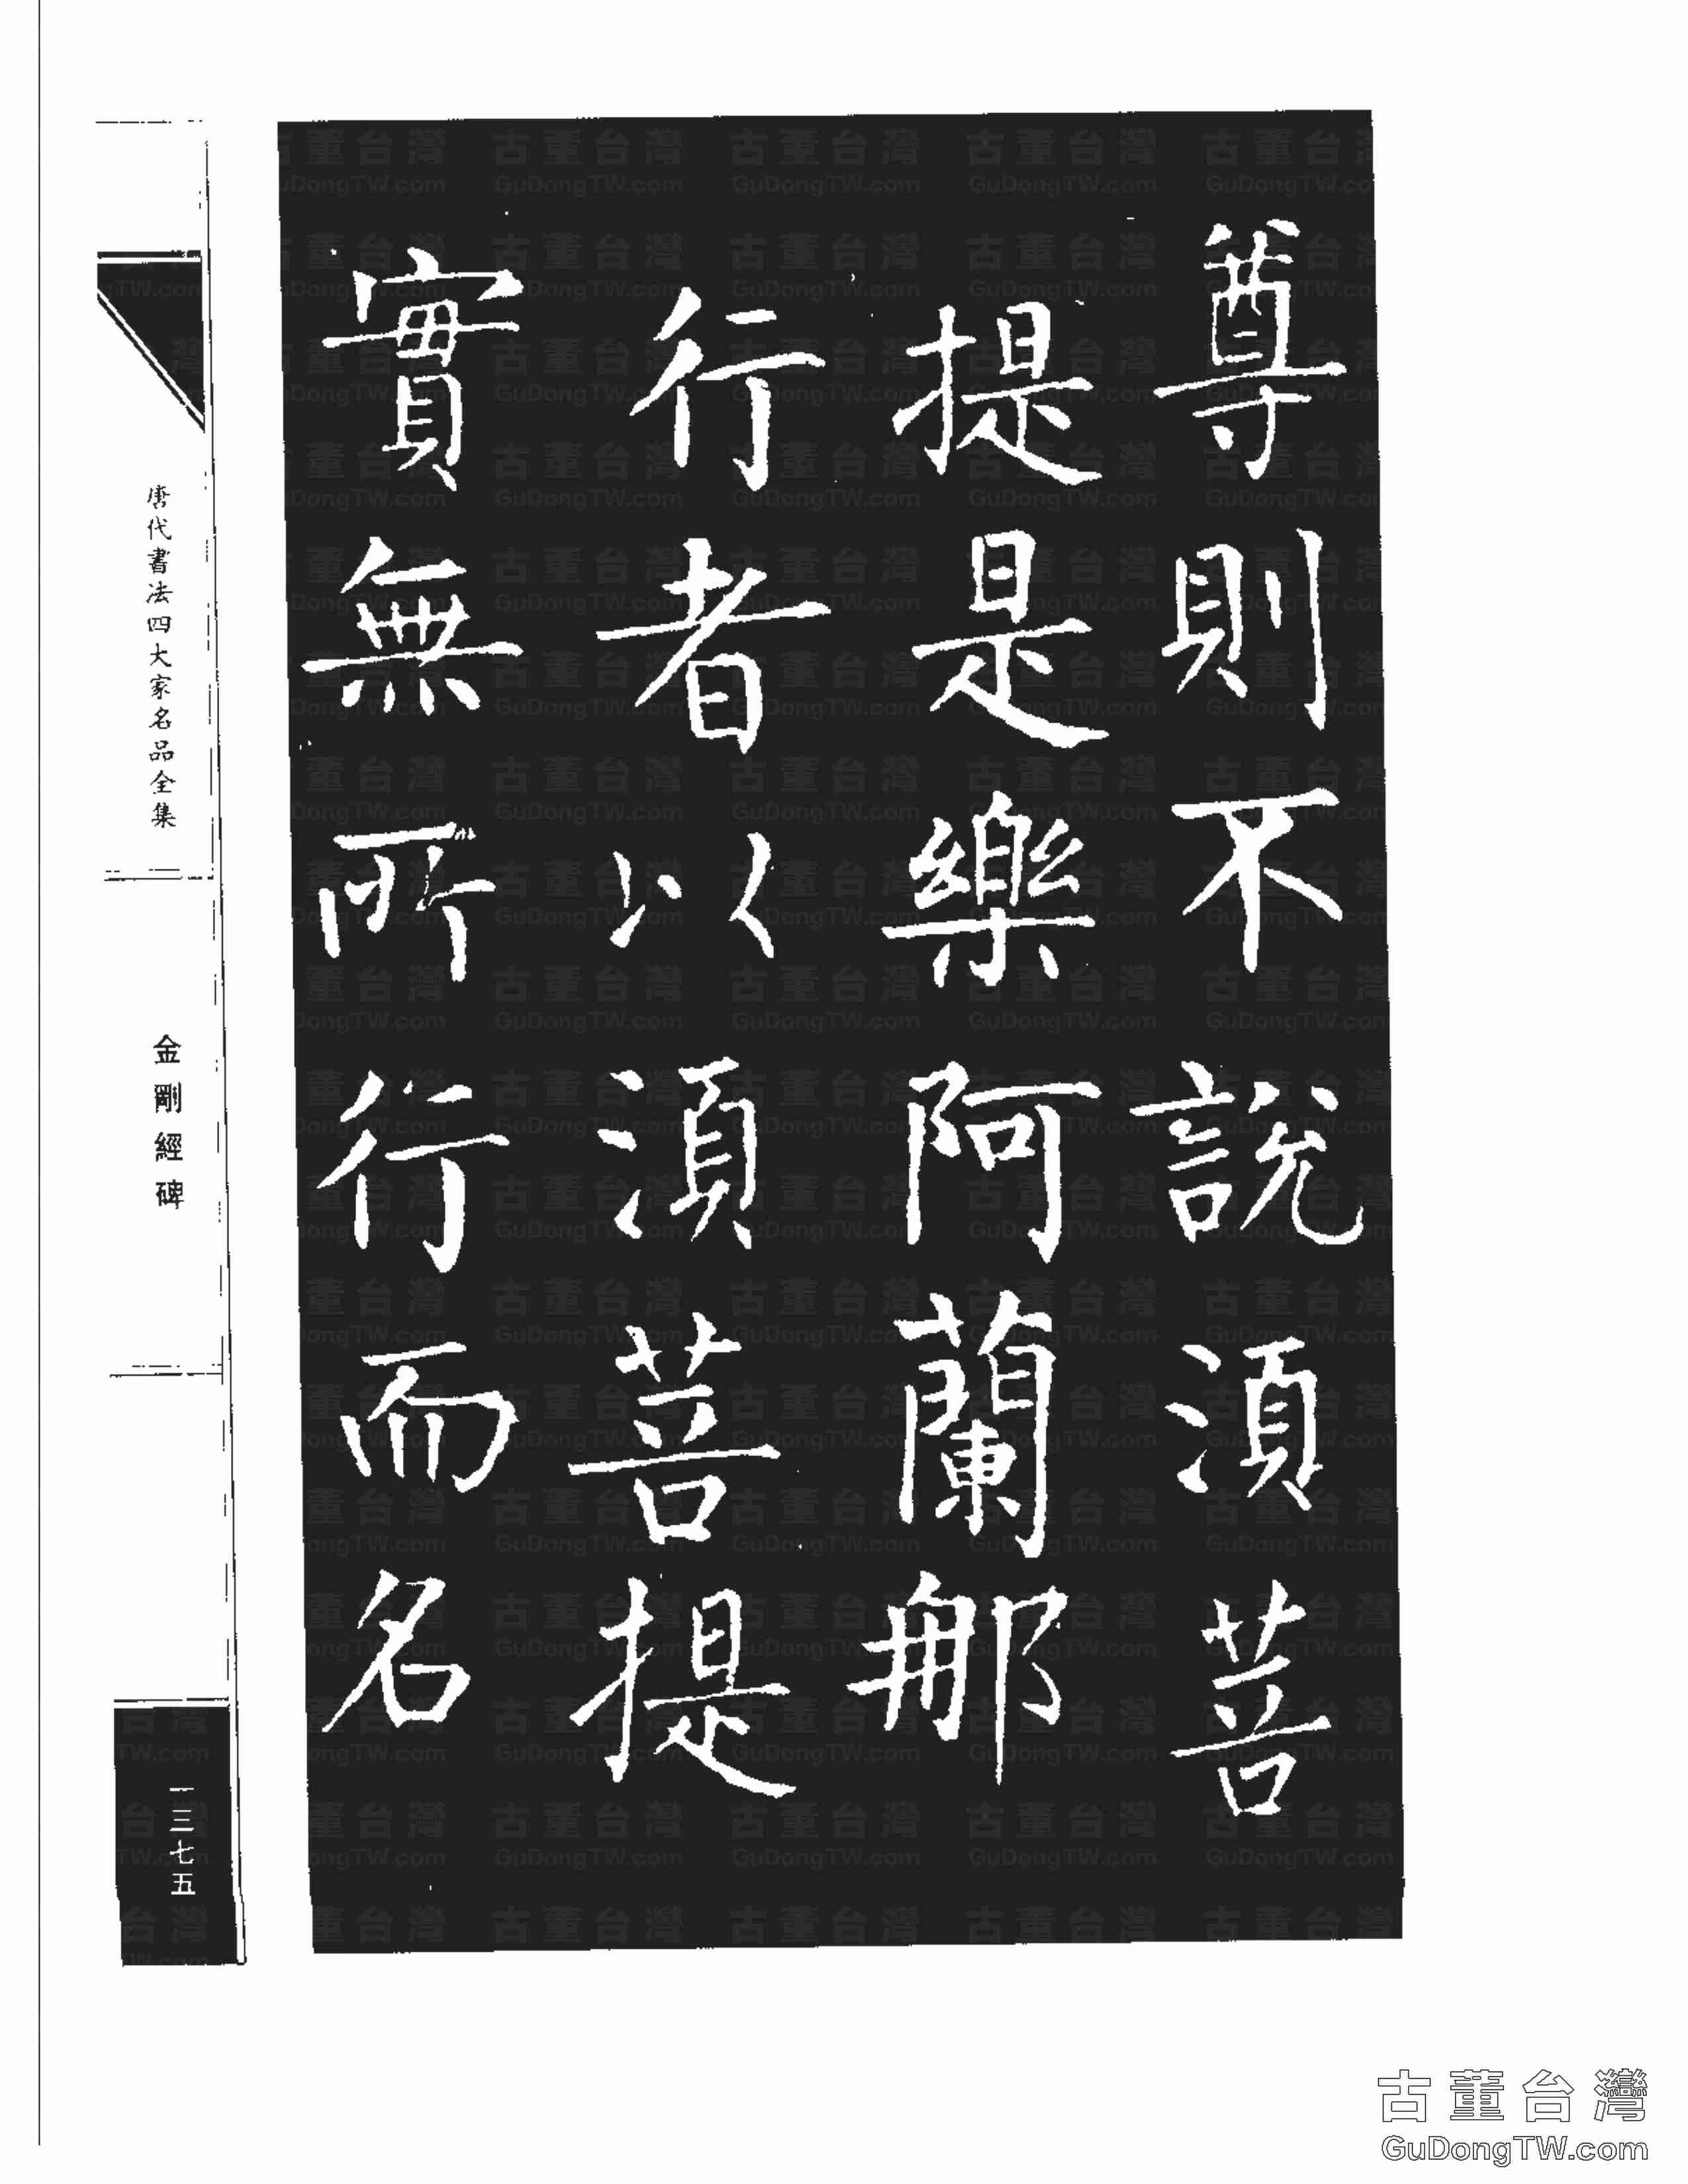 尊則不說湏菩
提是樂阿蘭那
行者以湏菩提
實無所行而名
唐代書法四大家名品全集
金剛經碑
一三七五
古董台灣
GuDongTW.com